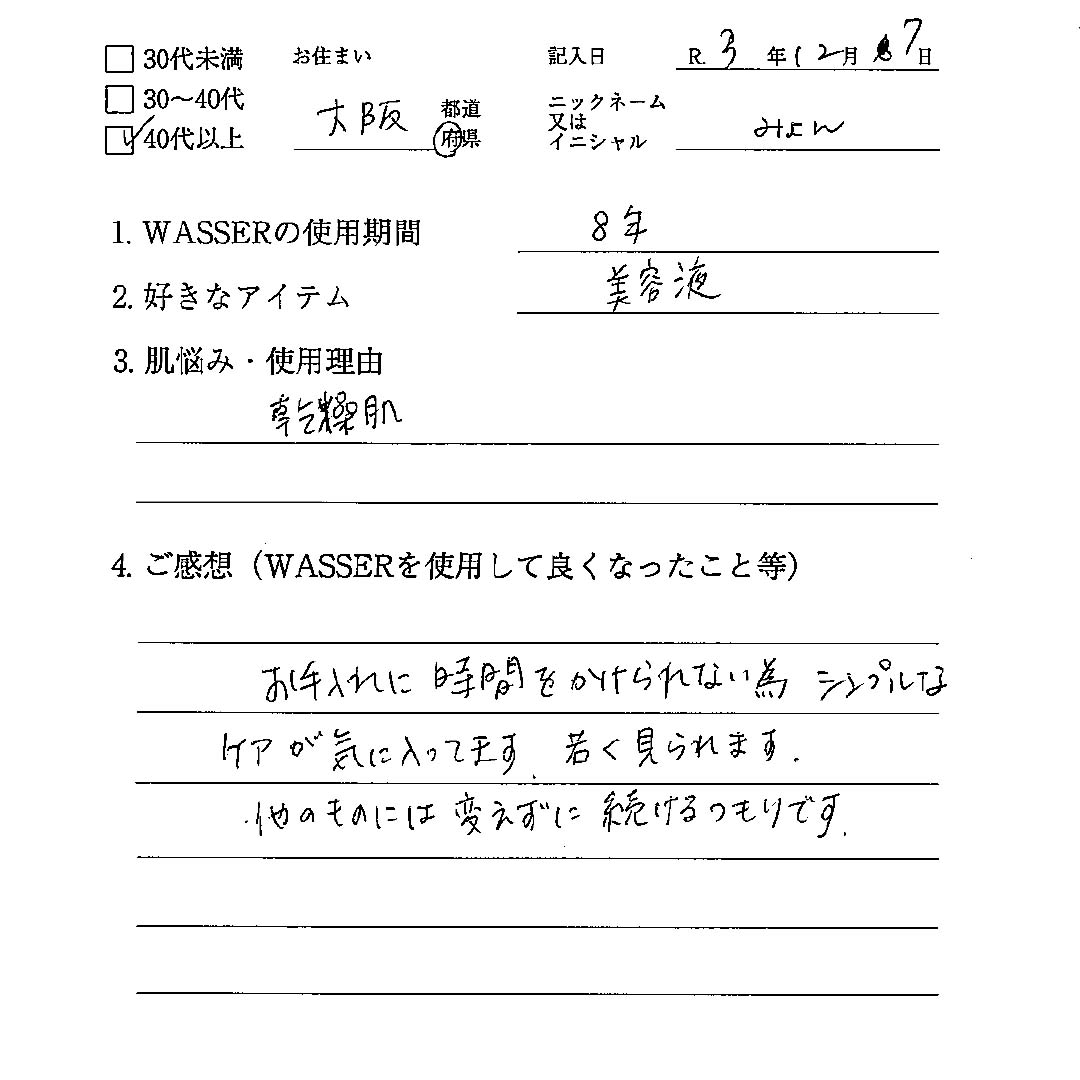 30代未満 お住まい 記入日 R. 3 年 12月 7日
30〜40代 大阪 都道府県 ニックネーム又はイニシャル みよん
40代以上
1. WASSERの使用期間 8年
2. 好きなアイテム 美容液
3. 肌悩み・使用理由
乾燥肌
4. ご感想（WASSERを使用して良くなったこと等）
お手入れに時間をかけられない為 シンプルな
ケアが気に入ってます. 若く見られます.
他のものには変えずに続けるつもりです.